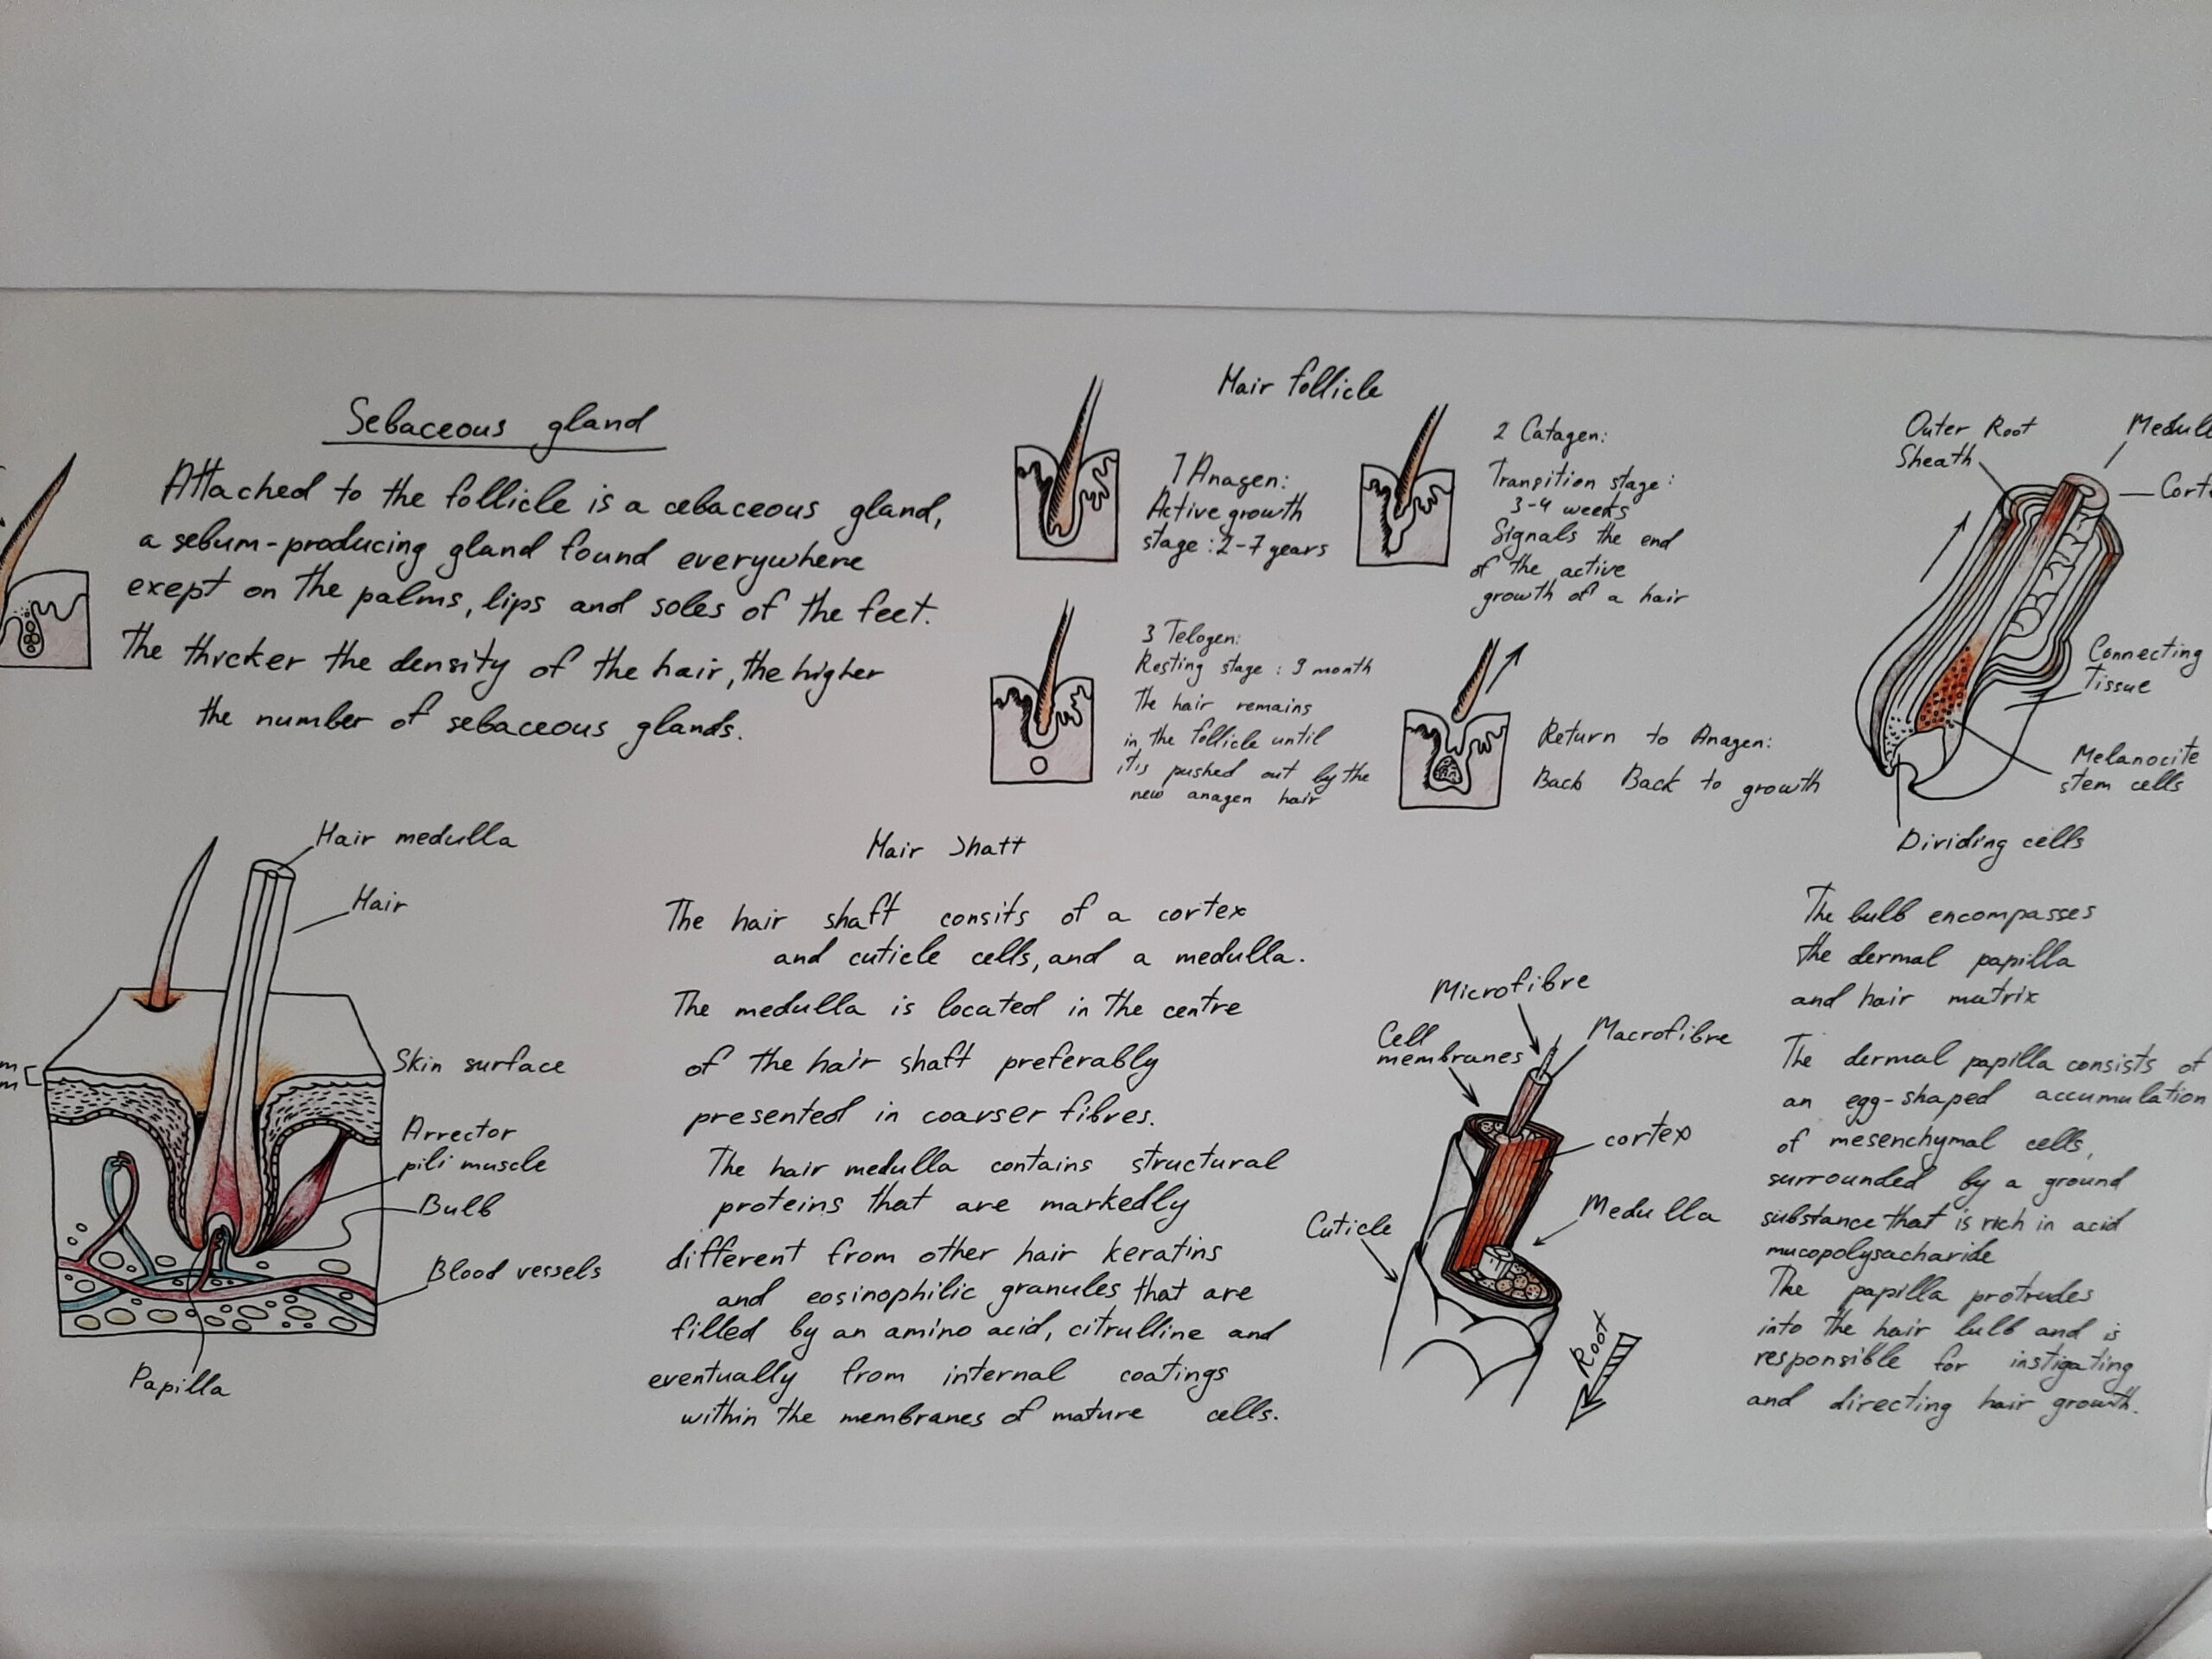 Sebaceous gland
Attached to the follicle is a cebaceous gland,
a sebum-producing gland found everywhere
exept on the palms, lips and soles of the feet.
The thicker the density of the hair, the higher
the number of sebaceous glands.
Hair follicle
1 Anagen:
Active growth
stage: 2-7 years
2 Catagen:
Transition stage:
3-4 weeks
Signals the end
of the active
growth of a hair
3 Telogen:
Resting stage: 9 month
The hair remains
in the follicle until
it's pushed out by the
new anagen hair
Return to Anagen:
Back Back to growth
Outer Root
Sheath
Medull
Corte
Connecting
Tissue
Melanocite
stem cells
Dividing cells
Hair medulla
Hair
Skin surface
Arrector
pili muscle
Bulb
Blood vessels
Papilla
m
m
Hair Shaft
The hair shaft consits of a cortex
and cuticle cells, and a medulla.
The medulla is located in the centre
of the hair shaft preferably
presented in coarser fibres.
The hair medulla contains structural
proteins that are markedly
different from other hair keratins
and eosinophilic granules that are
filled by an amino acid, citrulline and
eventually from internal coatings
within the membranes of mature cells.
Microfibre
Cell
membranes
Macrofibre
cortex
Medulla
Cuticle
Root
The bulb encompasses
the dermal papilla
and hair matrix
The dermal papilla consists of
an egg-shaped accumulation
of mesenchymal cells,
surrounded by a ground
substance that is rich in acid
mucopolysacharide
The papilla protrudes
into the hair bulb and is
responsible for instigating
and directing hair growth.